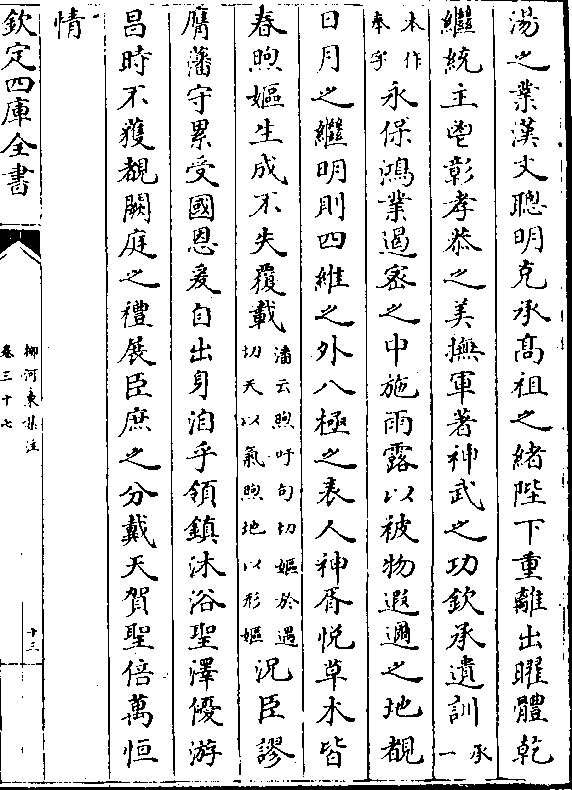 湯之業漢文聰明克承髙祖之緒陛下重離出曜體乾
繼統主鬯彰孝恭之美撫軍著神武之功欽承遺訓承一
本作奉字永保鴻業遏密之中施雨露以被物遐邇之地覩
日月之繼明則四維之外八極之表人神胥悦草木皆
春煦嫗生成不失覆載潘云煦吁句切嫗於遇切天以氣煦地以形嫗況臣謬
膺藩守累受國恩爰自出身洎乎領鎮沐浴聖澤優游
昌時不獲覩闕庭之禮展臣庶之分戴天賀聖倍萬恒
情
欽定四庫全書
柳河東集注
卷三十七
十三